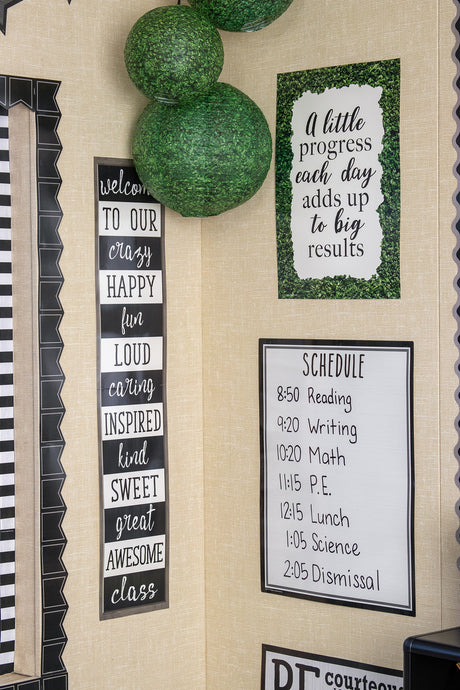 welcome
TO OUR
crazy
HAPPY
fun
LOUD
caring
INSPIRED
kind
SWEET
great
AWESOME
class
A little
progress
each day
adds up
to big
results
SCHEDULE
8:50 Reading
9:20 Writing
10:20 Math
11:15 P.E.
12:15 Lunch
1:05 Science
2:05 Dismissal
BE courteous